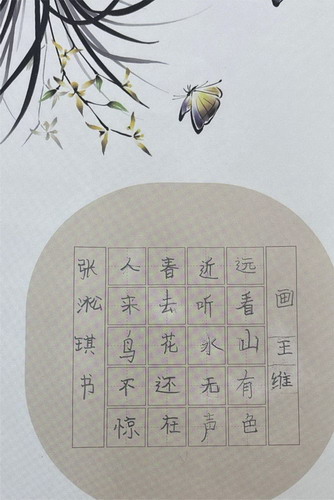 画 王维
远看山有色
近听水无声
春去花还在
人来鸟不惊
张淞琪书